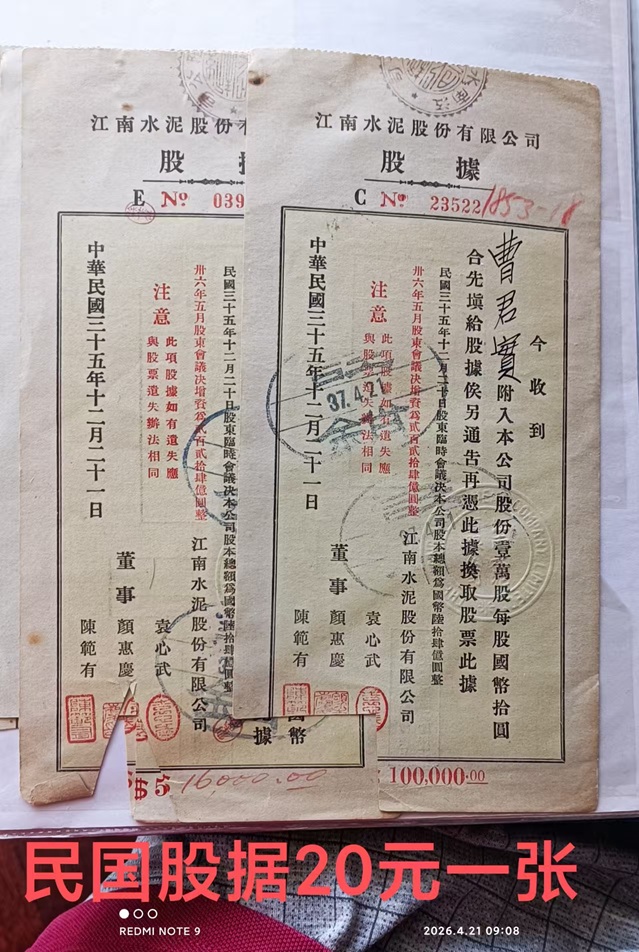 江南水泥股份有限公司
股據
C № 23522
1853-11
今收到
曹君實附入本公司股份壹萬股每股國幣拾圓
合先塡給股據俟另通告再憑此據換取股票此據
民國三十五年十二月二十日股東臨時會議決本公司股本總額爲國幣陸拾肆億圓整
卅六年五月股東會議決增資爲貳百貳拾肆億圓整
江南水泥股份有限公司
注意
此項股據如有遺失應
與股票遺失辦法相同
董事
袁心武
顏惠慶
陳範有
中華民國三十五年十二月二十一日
37.4.21
100,000.00
江南水泥股份有
股
E № 039
民國三十五年十二月二十日股東臨時會議決本公司股本總額爲國幣陸拾肆億圓整
卅六年五月股東會議決增資爲貳百貳拾肆億圓整
江南水泥股份有限公司
注意
此項股據如有遺失應
與股票遺失辦法相同
董事
袁心武
顏惠慶
陳範有
中華民國三十五年十二月二十一日
國幣
據
$5
16000.00
民国股据20元一张
REDMI NOTE 9
2026.4.21 09:08